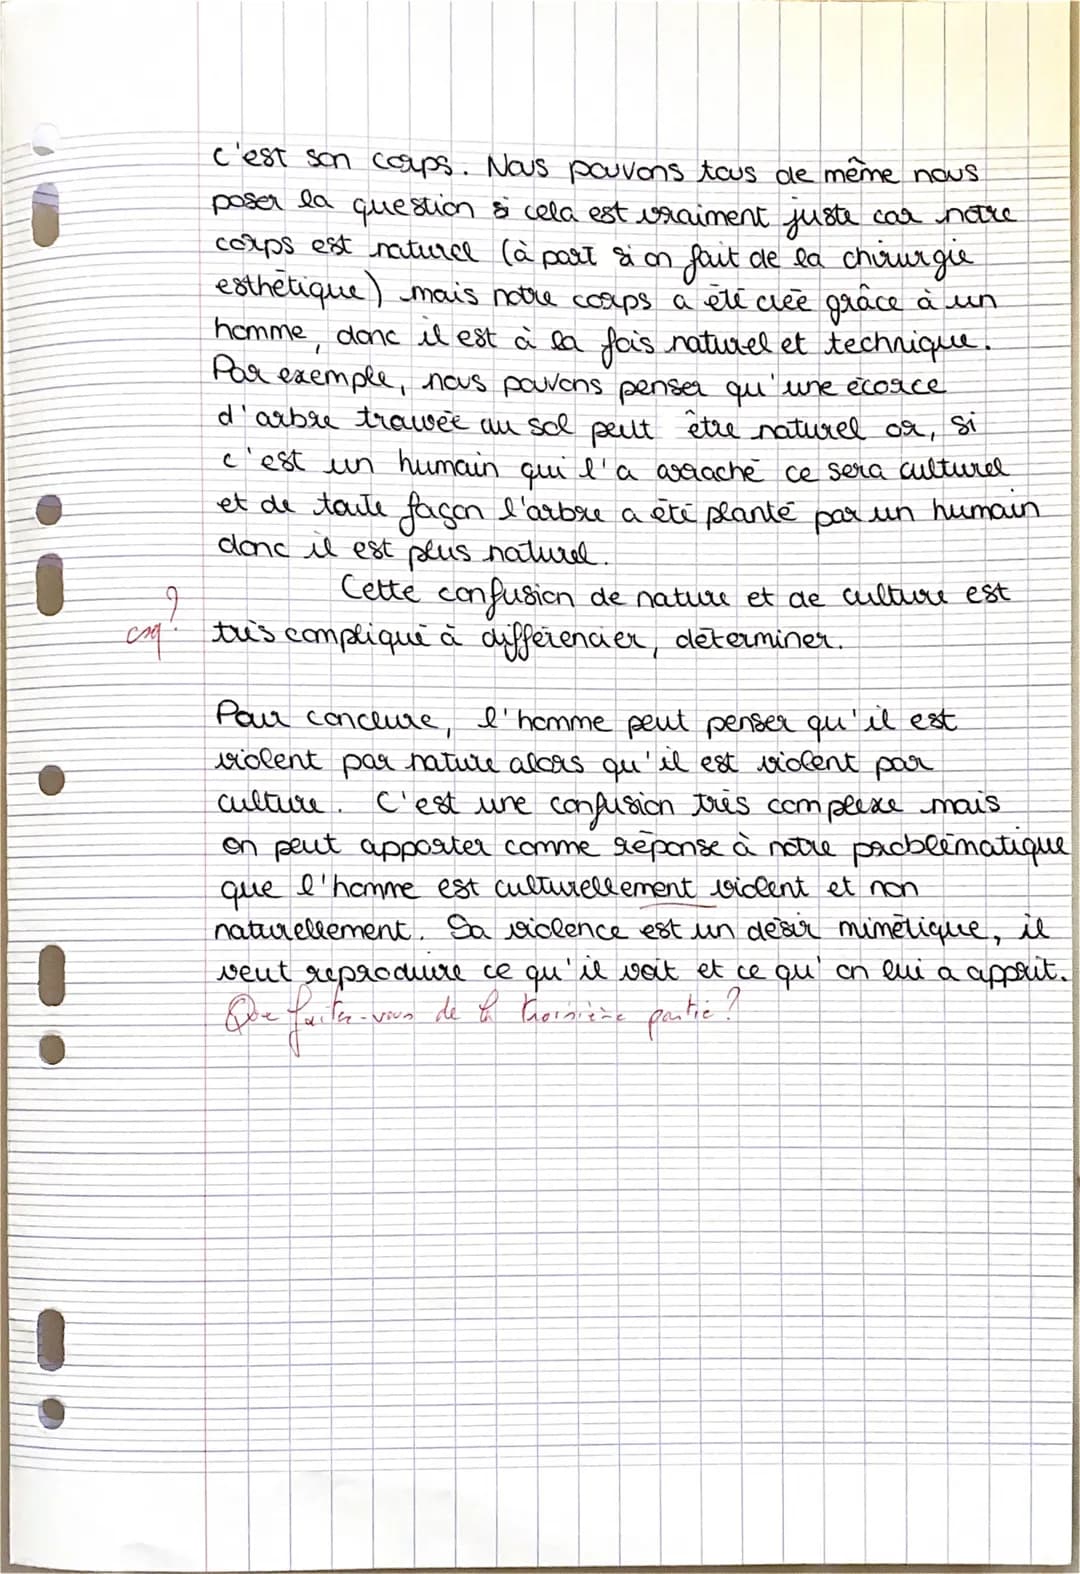 c'est son corps. Nous pouvons tous de même nous
poser la question si cela est vraiment juste car notre
corps est naturel (à part si on fait de la chirurgie
esthétique) mais notre corps a été créé grâce à un
homme, donc il est à la fois naturel et technique.
Par exemple, nous pouvons penser qu'une écorce
d'arbre trouvée au sol peut être naturel or, si
c'est un humain qui l'a arraché ce sera culturel
et de toute façon l'arbre a été planté par un humain
donc il est plus naturel.
Cette confusion de nature et de culture est
csq? très compliqué à différencier, déterminer.
Pour conclure, l'homme peut penser qu'il est
violent par nature alors qu'il est violent par
culture. C'est une confusion très complexe mais
on peut apporter comme réponse à notre problématique
que l'homme est culturellement violent et non
naturellement. Sa violence est un désir mimétique, il
veut reproduire ce qu'il voit et ce qu'on lui a apprit.
Que faites-vous de la troisième partie?